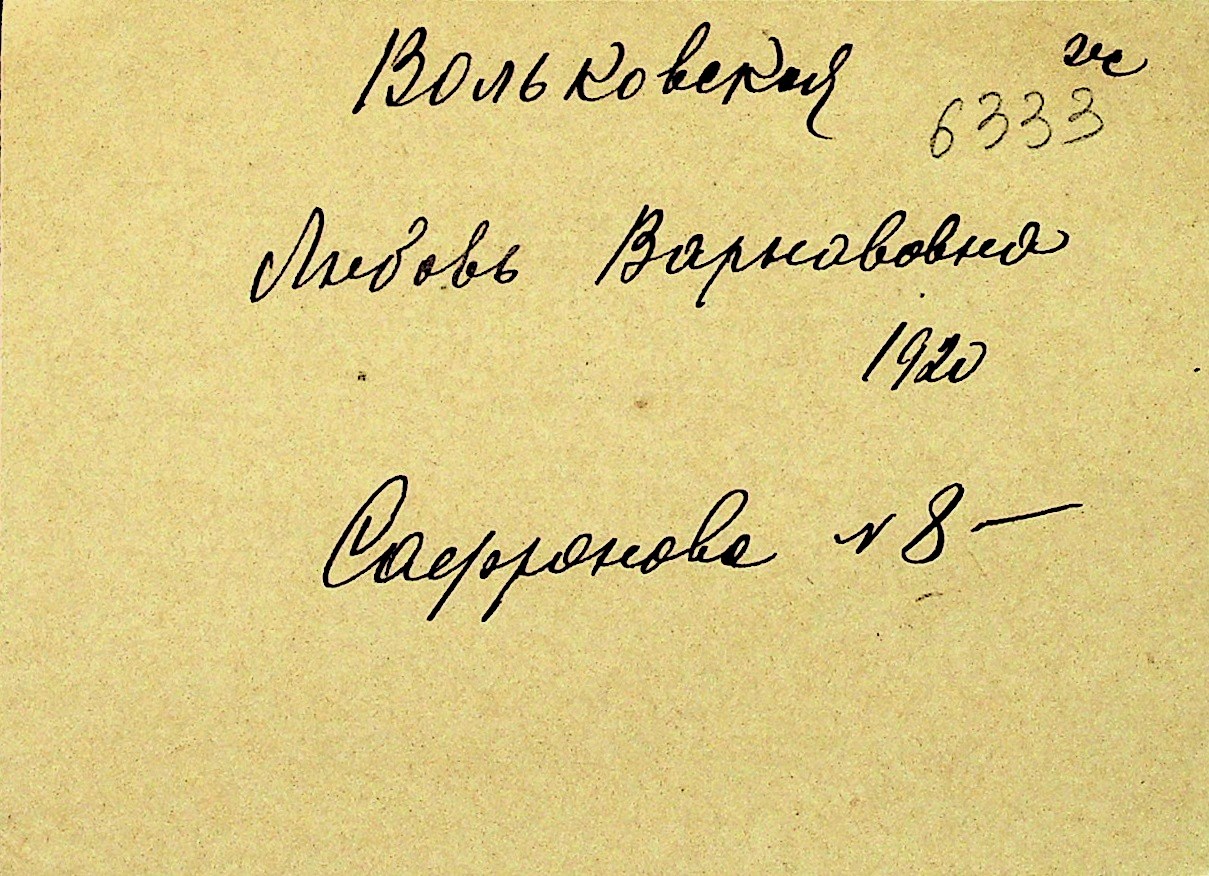 Вольковская
6333
Любовь Варнавовна
1920
Сафронова N 8 —